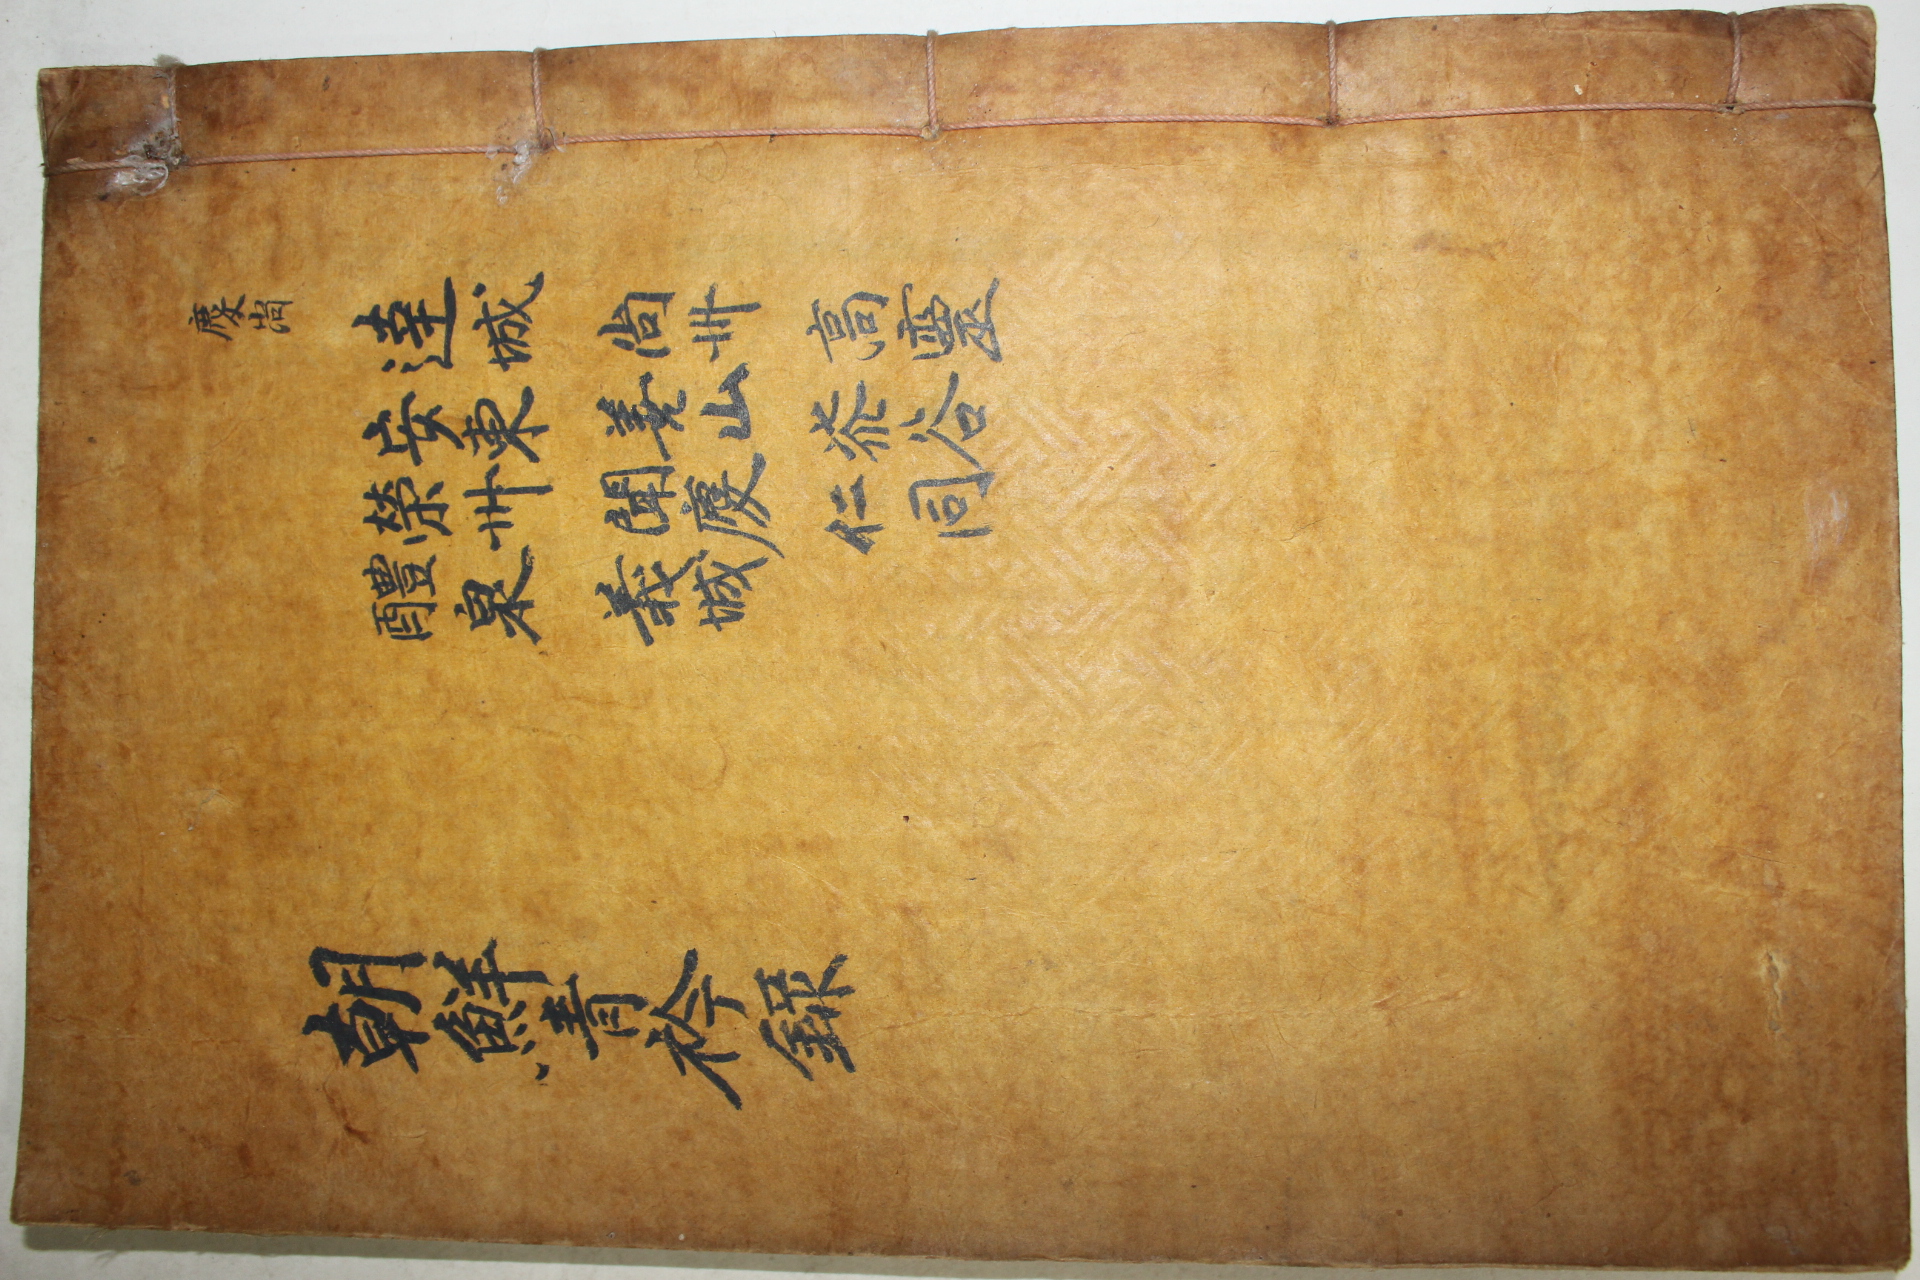 慶尚
達城 尚州 高靈
安東 善山 柒谷
榮州 聞慶 仁同
醴泉 義城
朝鮮青衿録